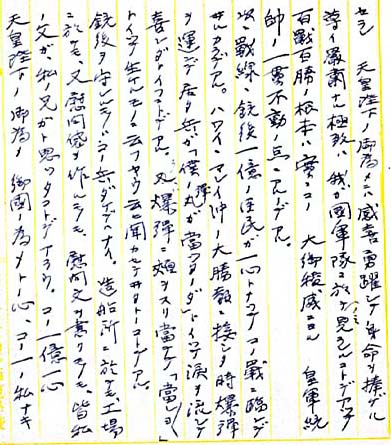 セヨ 天皇陛下ノ御為メニハ感喜勇躍シテ身命ヲ捧ゲル
尊イ厳粛ナ極致ハ我ガ国軍隊ニ於テノミ見ラルルコトデアツテ
百戦百勝ノ根本ハ実ニコノ 大御稜威ニヨル 皇軍統
帥ノ一貫不動ノ点ニアルノデアル。
次ニ戦線ト銃後一億ノ住民ガ一心トナツテコノ戦ニ臨ンデ
ヰルカラデアル。ハワイ、マレイ沖ノ大勝報ニ接シタ時爆弾
ヲ運ンデ居タ兵ガ「僕ノ弾丸ガ当ツタノダ」トイフテ涙ヲ流シテ
喜ンダトイフコトデアル。又爆弾ニ頬ヲスリ当テテ「当レヨ」
トイツテ生ケルモノニ云フヤウニ云ヒ聞カセテヰタトノコトデアル。
銃後ヲ守ルノモコノ兵ダケデハナイ。造船所ニ於テモ、工場
ニ於テモ、又慰問袋ヲ作ルノモ、慰問文ヲ書クノモ、皆
ノ父ガ、私ノ兄ガト思ツタコトデアラウ。コノ一億一心
天皇陛下ノ御為メ御国ノ為メトノ心、コノ一ノ私ナキ